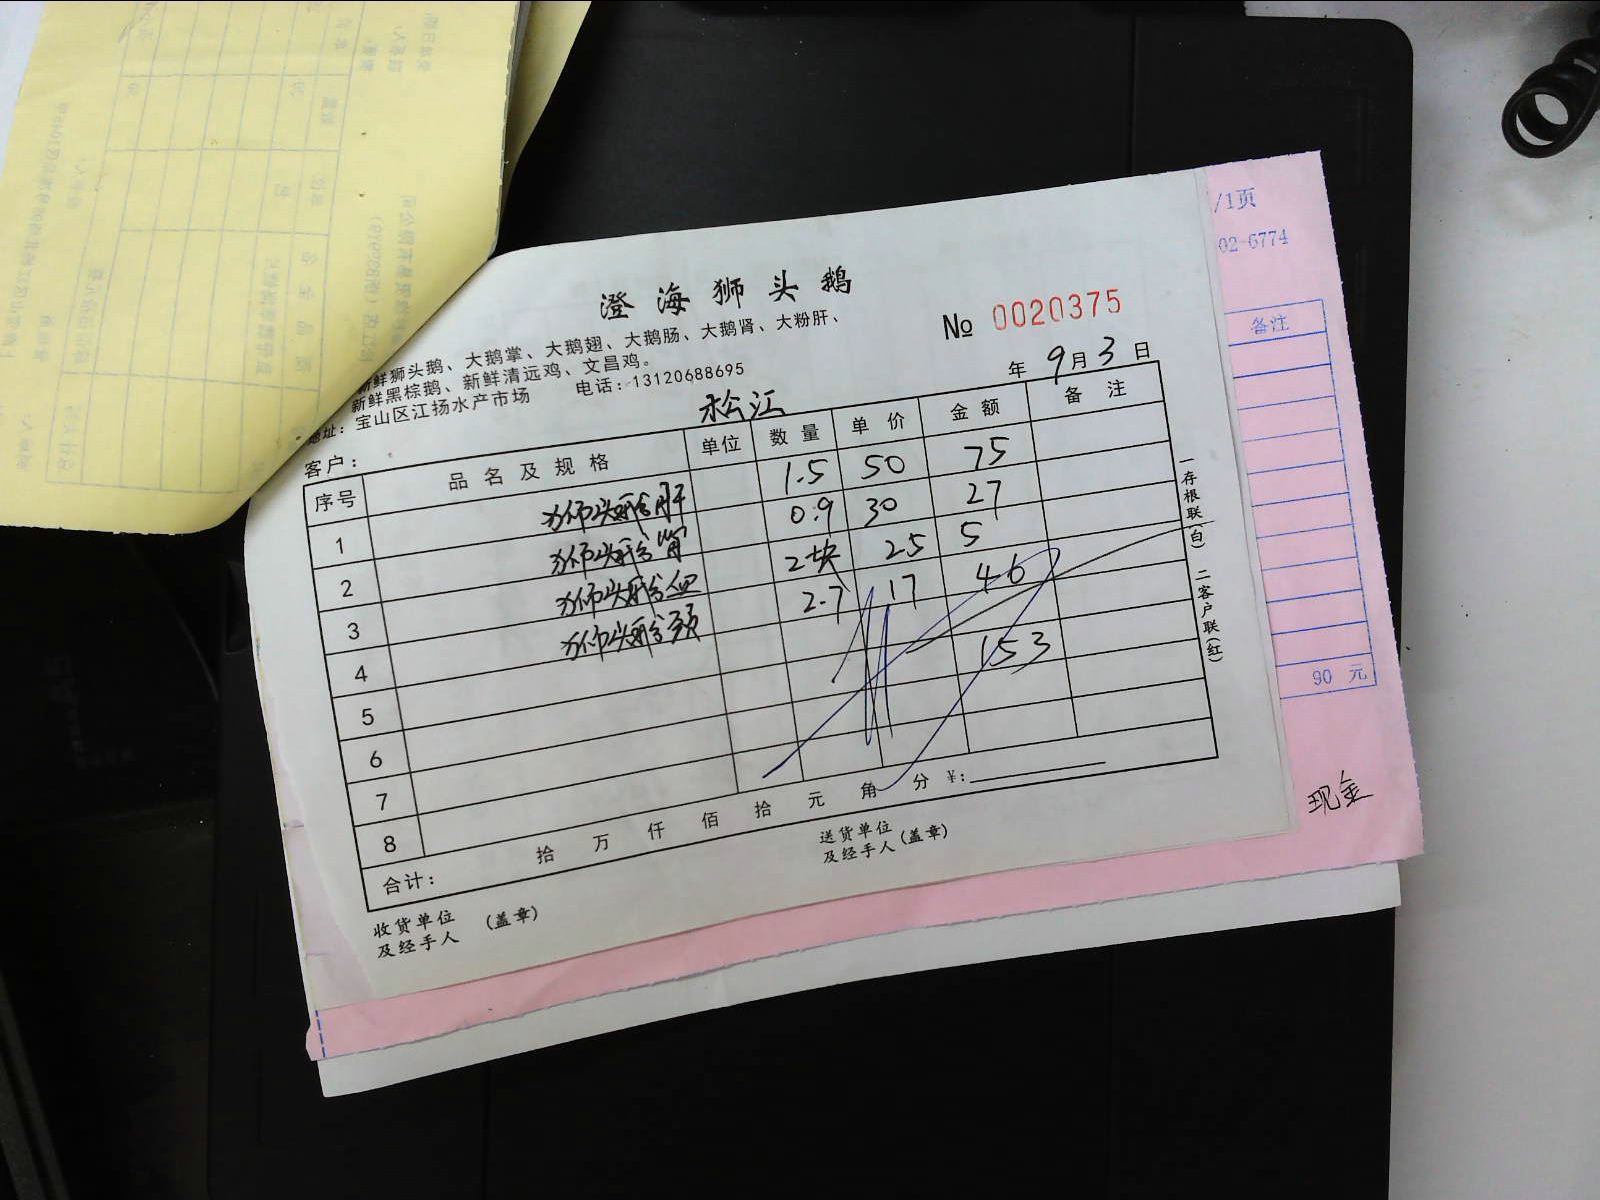 澄海狮头鹅
新鲜狮头鹅、大鹅掌、大鹅翅、大鹅肠、大鹅肾、大粉肝、
新鲜黑棕鹅、新鲜清远鸡、文昌鸡。
地址：宝山区江扬水产市场 电话：13120688695
№ 0020375
年 9月3日
客户： 松江
序号 品名及规格 单位 数量 单价 金额 备注
1 狮头鹅肝 1.5 50 75
2 狮头鹅肾 0.9 30 27
3 狮头鹅血 2块 25 5
4 狮头鹅颈 2.7 17 46
5
6 153
7
8
合计： 拾 万 仟 佰 拾 元 角 分 ¥：
收货单位及经手人 (盖章)
送货单位及经手人 (盖章)
一存根联(白) 二客户联(红)
/1页
02-6774
备注
90 元
现金